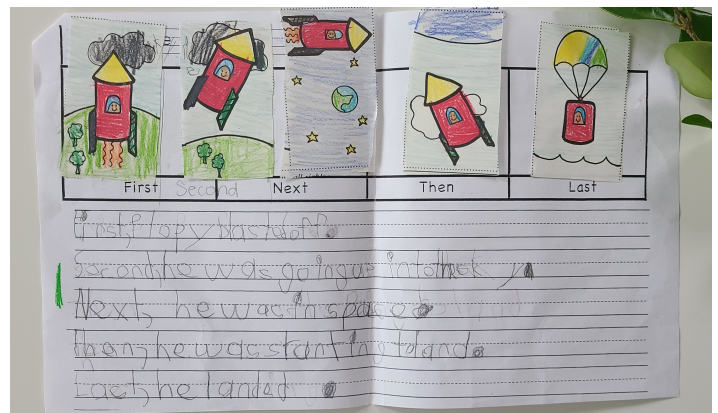 First Second Next Then Last
First, Flopy blastedoff.
Second, he was going up into the sky
Next, he was in spas
then, he was starting to land.
Last, he landed.